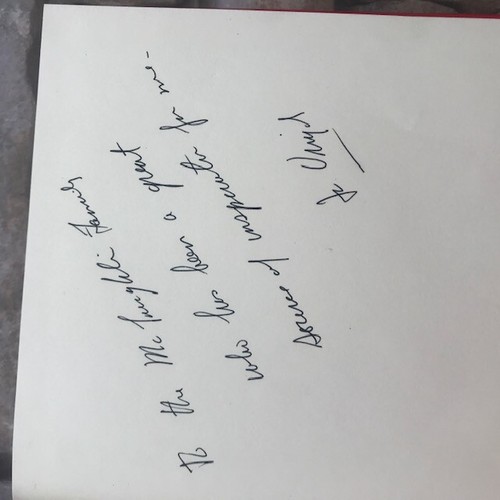 To the McLaughlin Family
who has been a great
source of inspiration for me -